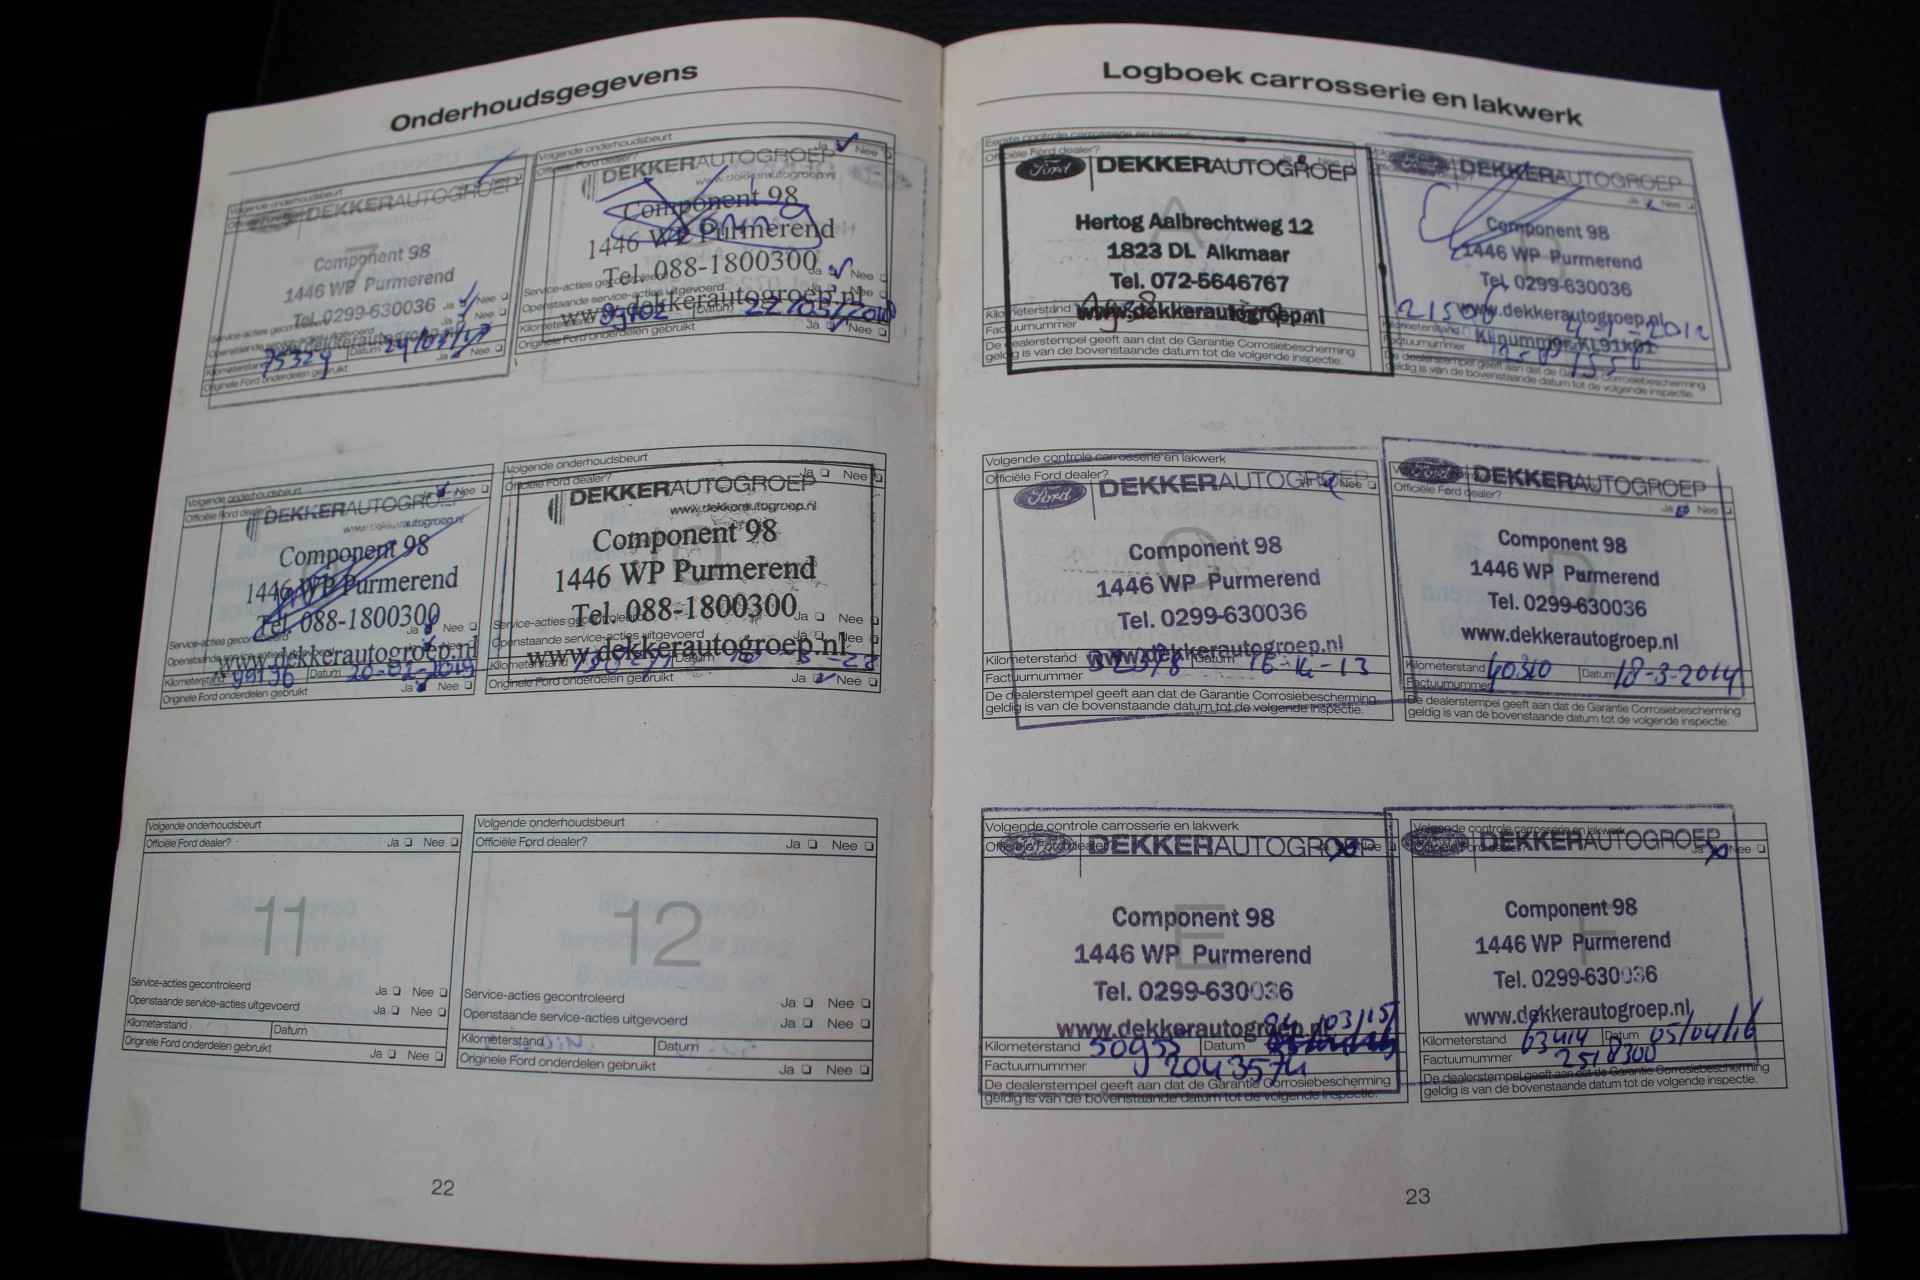 Onderhoudsgegevens
Volgende onderhoudsbeurt
DEKKERAUTOGROEP
Component 98
1446 WP Purmerend
Tel. 0299-630036
Ja Nee
Service-acties gecontroleerd
Ja Nee
Kilometerstand 75329 Datum 24/03/17
Originele Ford onderdelen gebruikt Ja Nee
Volgende onderhoudsbeurt
Officiële Ford dealer? Ja Nee
DEKKERAUTOGROEP
www.dekkerautogroep.nl
Component 98
1446 WP Purmerend
Tel. 088-1800300
Service-acties gecontroleerd Ja Nee
Openstaande service-acties uitgevoerd
www.dekkerautogroep.nl
Kilometerstand Datum 22/03/2018
Originele Ford onderdelen gebruikt Ja Nee
Volgende onderhoudsbeurt
Officiële Ford dealer? Nee
DEKKERAUTOGROEP
www.dekkerautogroep.nl
Component 98
1446 WP Purmerend
Tel. 088-1800300
Service-acties gecontroleerd Ja Nee
Openstaande service-acties uitgevoerd
www.dekkerautogroep.nl
Kilometerstand 99136 Datum 20-02-2019
Originele Ford onderdelen gebruikt Ja Nee
Volgende onderhoudsbeurt
Officiële Ford dealer? Ja Nee
DEKKERAUTOGROEP
www.dekkerautogroep.nl
Component 98
1446 WP Purmerend
Tel. 088-1800300
Service-acties gecontroleerd Ja Nee
Openstaande service-acties uitgevoerd Ja Nee
www.dekkerautogroep.nl
Kilometerstand Datum
Originele Ford onderdelen gebruikt Ja Nee
Volgende onderhoudsbeurt
Officiële Ford dealer? Ja Nee
11
Service-acties gecontroleerd Ja Nee
Openstaande service-acties uitgevoerd Ja Nee
Kilometerstand Datum
Originele Ford onderdelen gebruikt Ja Nee
Volgende onderhoudsbeurt
Officiële Ford dealer? Ja Nee
12
Service-acties gecontroleerd Ja Nee
Openstaande service-acties uitgevoerd Ja Nee
Kilometerstand Datum
Originele Ford onderdelen gebruikt Ja Nee
22
Logboek carrosserie en lakwerk
Eerste controle carrosserie en lakwerk
Officiële Ford dealer?
Ford DEKKERAUTOGROEP
A
Hertog Aalbrechtweg 12
1823 DL Alkmaar
Tel. 072-5646767
Kilometerstand
www.dekkerautogroep.nl
Factuurnummer
De dealerstempel geeft aan dat de Garantie Corrosiebescherming
geldig is van de bovenstaande datum tot de volgende inspectie.
DEKKERAUTOGROEP
Ja Nee
Component 98
1446 WP Purmerend
Tel. 0299-630036
www.dekkerautogroep.nl
Kilometerstand
Factuurnummer
De dealerstempel geeft aan dat de Garantie Corrosiebescherming
geldig is van de bovenstaande datum tot de volgende inspectie.
Volgende controle carrosserie en lakwerk
Officiële Ford dealer? Nee
Ford DEKKERAUTOGROEP
C
Component 98
1446 WP Purmerend
Tel. 0299-630036
www.dekkerautogroep.nl
Kilometerstand Datum
Factuurnummer
De dealerstempel geeft aan dat de Garantie Corrosiebescherming
geldig is van de bovenstaande datum tot de volgende inspectie.
Ford DEKKERAUTOGROEP
Officiële Ford dealer?
Ja Nee
D
Component 98
1446 WP Purmerend
Tel. 0299-630036
www.dekkerautogroep.nl
Kilometerstand 40310 Datum 18-3-2014
Factuurnummer
De dealerstempel geeft aan dat de Garantie Corrosiebescherming
geldig is van de bovenstaande datum tot de volgende inspectie.
Volgende controle carrosserie en lakwerk
Officiële Ford dealer? Nee
DEKKERAUTOGROEP
E
Component 98
1446 WP Purmerend
Tel. 0299-630036
www.dekkerautogroep.nl
Kilometerstand 50955 Datum
Factuurnummer 2043574
De dealerstempel geeft aan dat de Garantie Corrosiebescherming
geldig is van de bovenstaande datum tot de volgende inspectie.
Volgende controle carrosserie en lakwerk
DEKKERAUTOGROEP
Ja Nee
F
Component 98
1446 WP Purmerend
Tel. 0299-630036
www.dekkerautogroep.nl
Kilometerstand 63414 Datum 05/04/16
Factuurnummer 2518300
De dealerstempel geeft aan dat de Garantie Corrosiebescherming
geldig is van de bovenstaande datum tot de volgende inspectie.
23